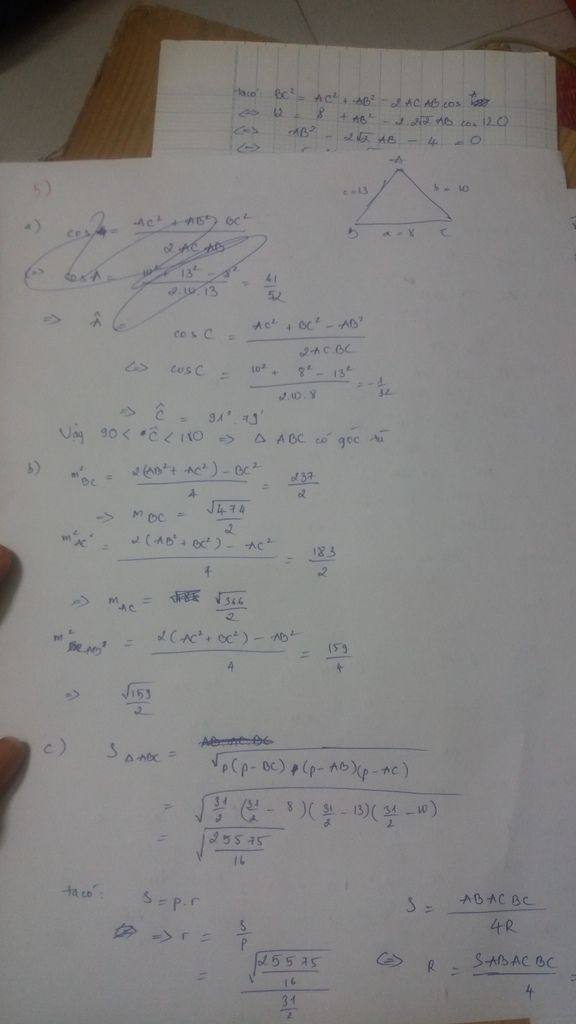 ta có: BC² = AC² + AB² - 2AC AB cos A
<=> 12 = 8 + AB² - 2.2√2 AB cos 120
<=> AB² - 2√2 AB - 4 = 0
<=>
5)
A
c = 13
b = 10
B
a = 8
C
a) cos A = (AC² + AB² - BC²) / (2 AC AB)
<=> cos A = (10² + 13² - 8²) / (2.10.13) = 41/52
=> Â =
cos C = (AC² + BC² - AB²) / (2AC.BC)
<=> cos C = (10² + 8² - 13²) / (2.10.8) = -1/32
=> Ĉ = 91°.79'
Vậy 90 < Ĉ < 180 => Δ ABC có góc tù
b) m²BC = (2(AB² + AC²) - BC²) / 4 = 237/2
=> mBC = √474 / 2
m²AC = (2(AB² + BC²) - AC²) / 4 = 183/2
=> mAC = √366 / 2
m²AB = (2(AC² + BC²) - AB²) / 4 = 159/4
=> √159 / 2
c) SΔABC = √(p(p-BC)(p-AB)(p-AC))
= √(31/2 (31/2 - 8)(31/2 - 13)(31/2 - 10))
= √(25575/16)
ta có: S = p.r
=> r = S/p
= √(25575/16) / (31/2)
S = AB AC BC / 4R
<=> R = S AB AC BC / 4 =